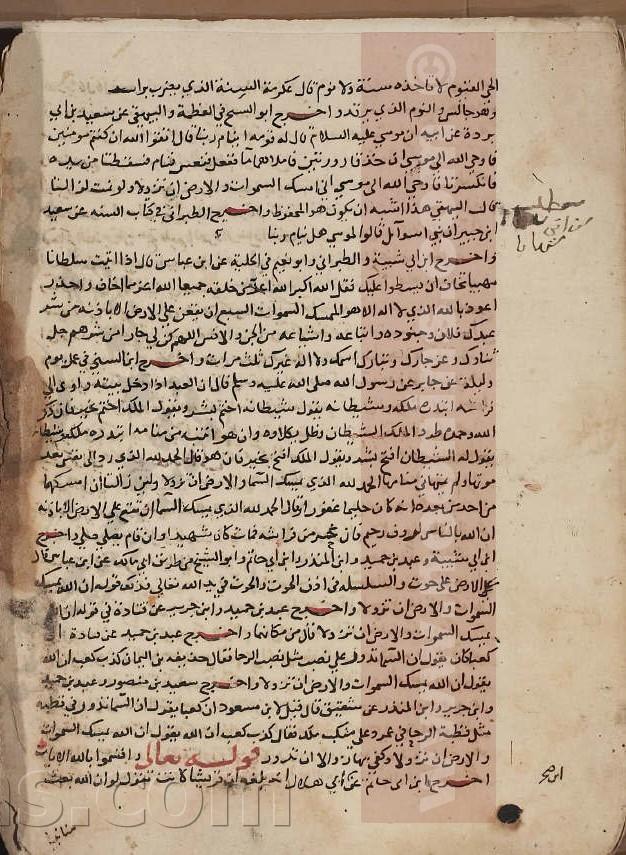 الحي القيوم لا تاخذه سنة ولا نوم قال عكرمة السنة الذي يضرب براسه
وهو جالس والنوم الذي يرقد واخرج ابو الشيخ في العظمة والبيهقي عن سعيد بن ابي
بردة عن ابيه ان موسي عليه السلام قال له قومه اينام ربنا قال اتقوا الله ان كنتم مومنين
فاوحي الله الي موسي ان خذ قارورتين فاملاهما ما ففعل فنعس فنام فسقطتا من يده
فانكسرتا فاوحي الله الي موسي اني امسك السموات والارض ان تزولا ولو نمت لزالتا
قال البيهقي هذا اشبه ان يكون هو المحفوظ واخرج الطبراني في كتاب السنه عن سعيد
ابن جبير ان بني اسرائل قالوا لموسي هل ينام ربنا
واخرج ابن ابي شيبة والطبراني وابو نعيم في الحلية عن ابن عباس قال اذا اتيت سلطانا
مهيبا تخاف ان يسطو عليك فقل الله اكبر الله اعز من خلقه جميعا الله اعز مما اخاف واحذر
اعوذ بالله الذي لا اله الا هو الممسك السموات السبع ان يقعن علي الارض الا باذنه من شر
عبدك فلان وجنوده واتباعه واشياعه من الجن والانس اللهم كن لي جارا من شرهم جل
ثناوك وعز جارك وتبارك اسمك ولا اله غيرك ثلث مرات واخرج ابن السني في عمل يوم
وليلة عن جابر عن رسول الله صلي الله عليه وسلم قال ان العبد اذا دخل بيته واوي الي
فراشه ابتدره ملكه وشيطانه يقول شيطانه اختم بشر ويقول الملك اختم بخير فان ذكر
الله وحده طرد الملك الشيطان وظل يكلاوه وان هو انتبه من منامه ابتدره ملكه وشيطانه
يقول له الشيطان افتح بشر ويقول الملك افتح بخير فان هو قال الحمد لله الذي رد الي نفسي بعد
موتها ولم يمتها في منامها الحمد لله الذي يمسك السما والارض ان تزولا ولين زالتا ان امسكهما
من احد من بعده انه كان حليما غفورا وقال الحمد لله الذي يمسك السما ان تقع علي الارض الا باذنه
ان الله بالناس لروف رحيم فان خر من فراشه فمات كان شهيدا وان قام يصلي صلي واخرج
ابن ابي شيبة وعبد بن حميد وابن المنذر وابن ابي حاتم وابو الشيخ من طريق ابي مالك عن ابن عباس قال
الارض علي حوت والسلسله في اذن الحوت والحوت في يد الله تعالي فذلك قوله ان الله يمسك
السموات والارض ان تزولا واخرج عبد بن حميد وابن جرير عن قتادة في قوله ان الله
يمسك السموات والارض ان تزولا قال من مكانهما واخرج عبد بن حميد عن قتادة ان
كعبا كان يقول ان السما تدور علي نصب مثل نصب الرحا فقال حذيفه بن اليمان كذب كعب ان الله
يقول ان الله يمسك السموات والارض ان تزولا واخرج سعيد بن منصور وعبد بن حميد
وابن جرير وابن المنذر عن شقيق قال قيل لابن مسعود ان كعبا يقول ان السما تدور في قطبة
مثل قطبة الرحا في عمود علي منكب ملك فقال كذب كعب ان الله يقول ان الله يمسك السموات
والارض ان تزولا وكفي بها زوالا ان تدور قوله تعالي واقسموا بالله الايات
اخرج ابن ابي حاتم عن ابي هلال انه بلغه ان قريشا كانت تقول لو ان الله بعث
مطلب